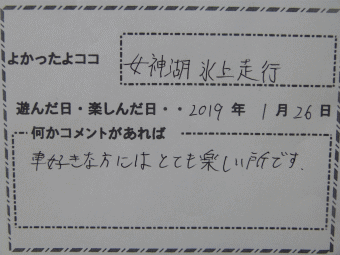 よかったよココ 女神湖 氷上走行
遊んだ日・楽しんだ日・・2019年 1月26日
何かコメントがあれば
車好きな方には とても楽しい所です.